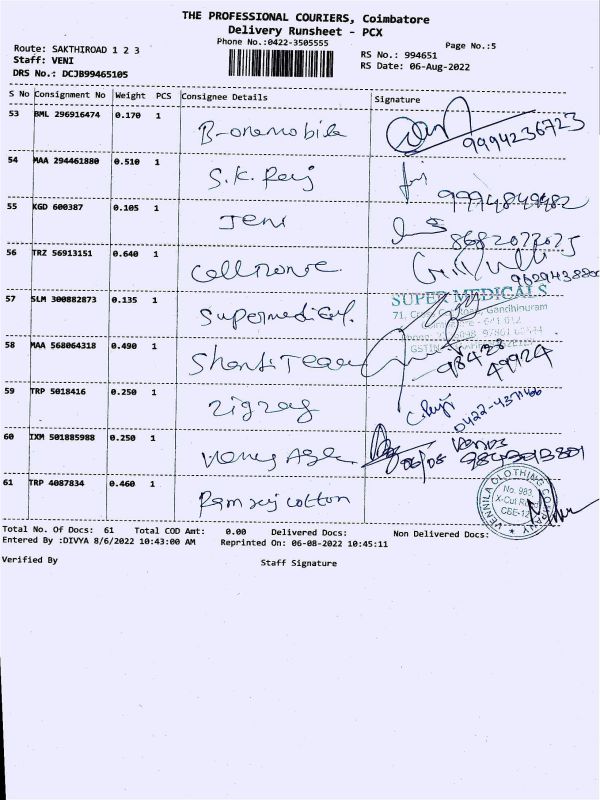 THE PROFESSIONAL COURIERS, Coimbatore
Delivery Runsheet - PCX
Phone No.:0422-3505555
Page No.:5
Route: SAKTHIROAD 1 2 3
Staff: VENI
DRS No.: DCJB99465105
RS No.: 994651
RS Date: 06-Aug-2022
S No Consignment No Weight PCS Consignee Details Signature
53 BML 296916474 0.170 1 B-onemobile
9994236723
54 MAA 294461880 0.510 1 S.K. Raj
9994849482
55 KGD 600387 0.105 1 Jeni
56 TRZ 56913151 0.640 1
57 SLM 300882873 0.135 1 Supermedical.
SUPER MEDICALS
Gandhipuram
58 MAA 568064318 0.490 1 Shanti Tea
98428
49924
59 TRP 5018416 0.250 1 zigzag
60 IXM 501885988 0.250 1
06/08
9843013801
61 TRP 4087834 0.460 1 Ramraj cotton
VENNILA CLOTHING COMPANY
No. 983
X-Cut Rd
CBE-12
Total No. Of Docs: 61 Total COD Amt: 0.00 Delivered Docs: Non Delivered Docs:
Entered By :DIVYA 8/6/2022 10:43:00 AM Reprinted On: 06-08-2022 10:45:11
Verified By Staff Signature